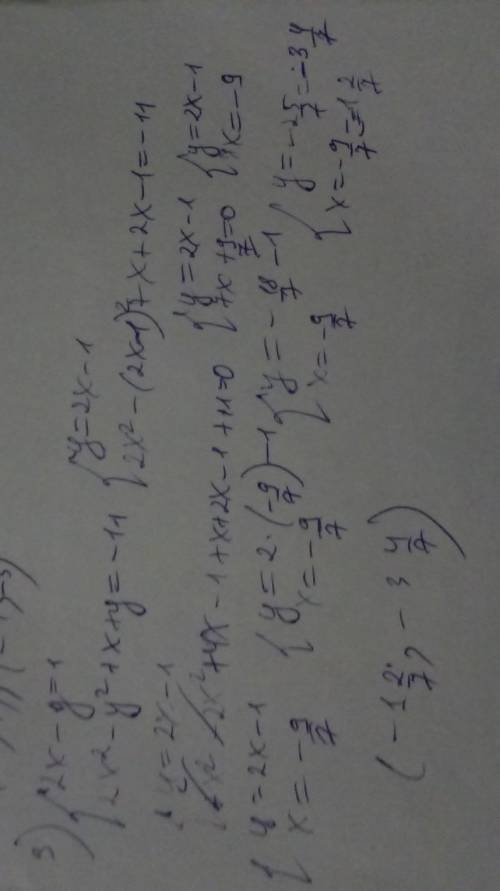 3) { 2x - y = 1
{ 2x² - y² + x + y = -11 { y = 2x - 1
{ 2x² - (2x-1)² + x + 2x - 1 = -11
{ y = 2x - 1
{ 2x² - 2x² + 4x - 1 + x + 2x - 1 + 11 = 0 { y = 2x - 1
{ 7x + 9 = 0 { y = 2x - 1
{ 7x = -9
{ y = 2x - 1
{ x = -9/7 { y = 2·(-9/7) - 1
{ x = -9/7 { y = -18/7 - 1
{ x = -9/7 { y = -25/7 = -3 4/7
{ x = -9/7 = -1 2/7
(-1 2/7, -3 4/7)